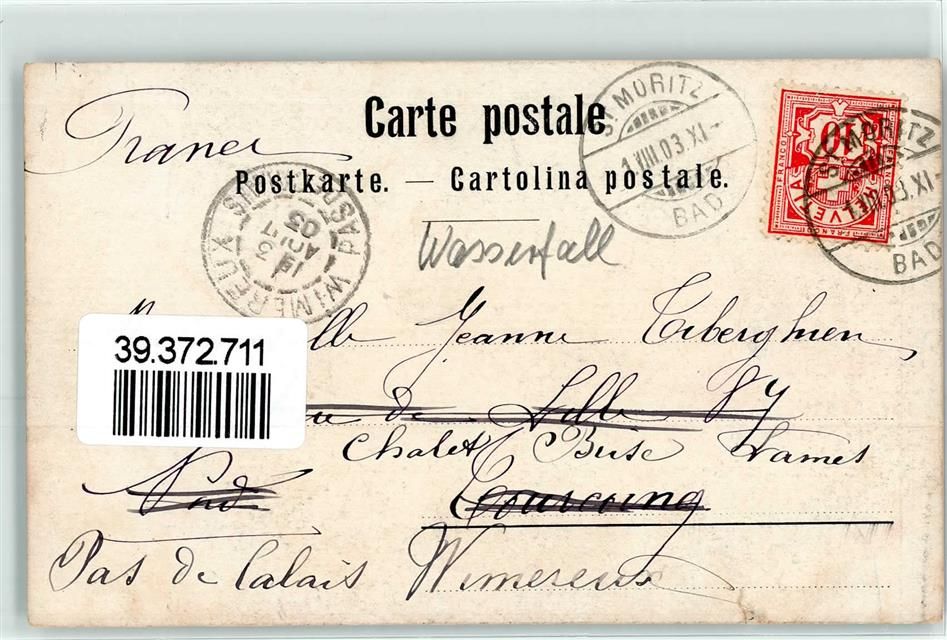 Carte postale
Postkarte. — Cartolina postale.
France
ST. MORITZ
1.VIII.03.XI-
BAD
10
FRANCO
HELVETIA
ST. MORITZ
1.VIII.03.XI-
BAD
WIMEREUX
PAS-DE-CALAIS
03
Wasserfall
39.372.711
lle Jeanne Tiberghien
de Lille 87
Chalet Brise Lames
Nord Tourcoing
Pas de Calais Wimereux